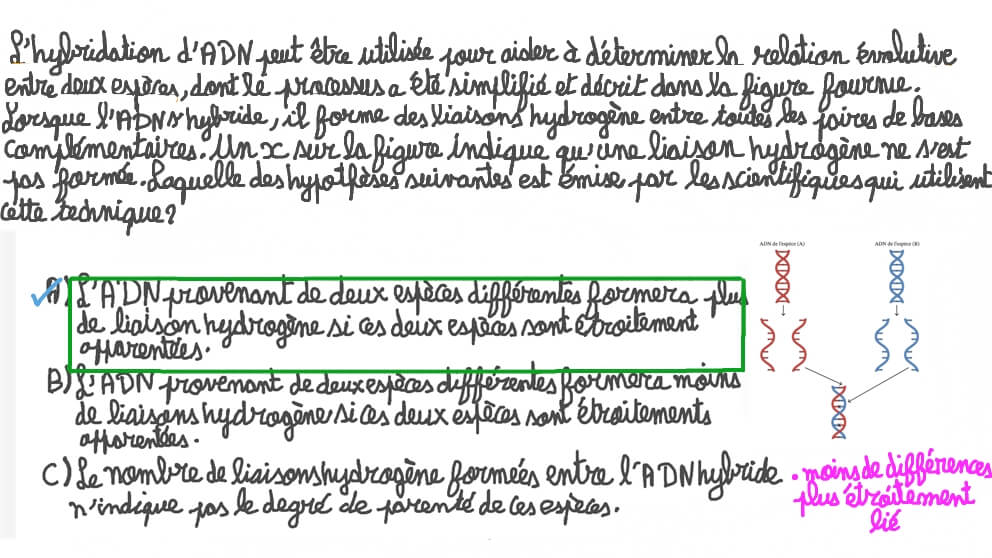 L'hybridation d'ADN peut être utilisée pour aider à déterminer la relation évolutive
entre deux espèces, dont le processus a été simplifié et décrit dans la figure fournie.
Lorsque l'ADN s'hybride, il forme des liaisons hydrogène entre toutes les paires de bases
complémentaires. Un x sur la figure indique qu'une liaison hydrogène ne s'est
pas formée. Laquelle des hypothèses suivantes est émise par les scientifiques qui utilisent
cette technique?
ADN de l'espèce (A)
ADN de l'espèce (B)
A) L'ADN provenant de deux espèces différentes formera plus
de liaison hydrogène si ces deux espèces sont étroitement
apparentées.
B) L'ADN provenant de deux espèces différentes formera moins
de liaisons hydrogène si ces deux espèces sont étroitements
apparentées.
C) Le nombre de liaisons hydrogène formées entre l'ADN hybride
n'indique pas le degré de parenté de ces espèces.
• moins de différences
plus étroitement
lié